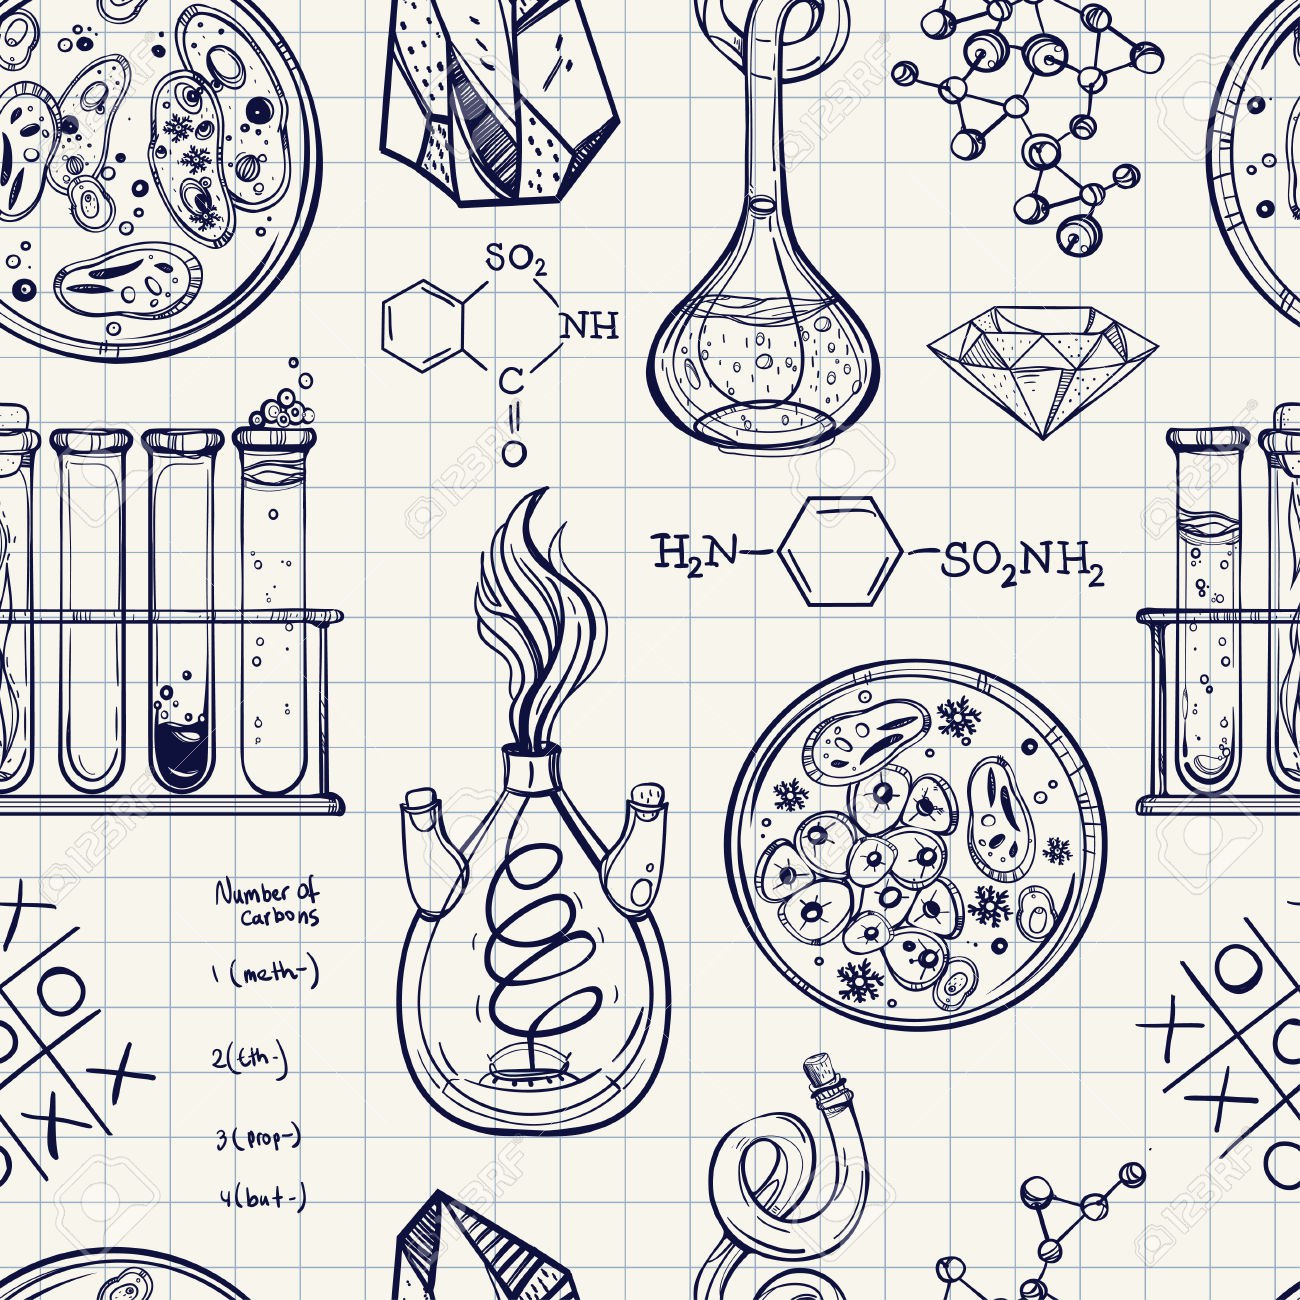 SO2
NH
C
O
H2N
SO2NH2
Number of
Carbons
1 (meth-)
2 (Eth-)
3 (prop-)
4 (but-)
123RF